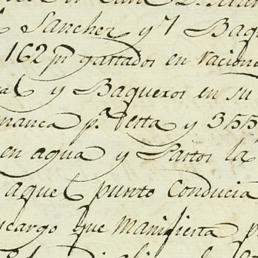 Sanchez y 1 Baqu
162 p^s gastados en racion
al y Baqueros en su
manca p^r. esta y 355
en agua y Pastos la
aquel punto conducia
cargo que manifiesta p